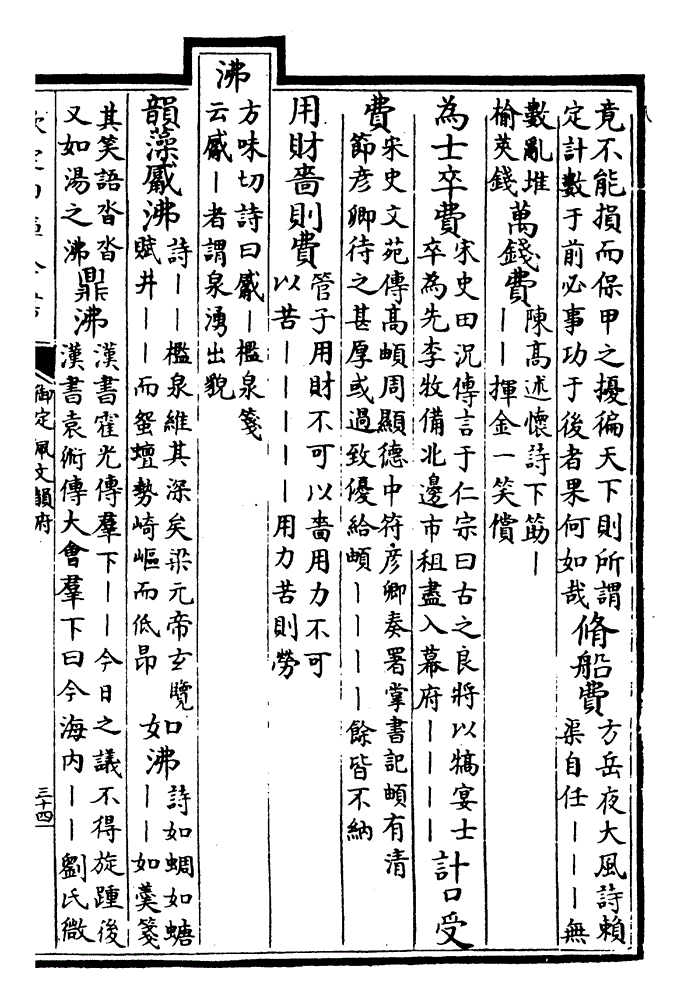 竟不能損而保甲之擾徧天下則所謂
定計數于前必事功于後者果何如哉
脩船費
方岳夜大風詩賴
渠自任｜｜｜無
數亂堆
榆莢錢
萬錢費
陳高述懷詩下筯｜
｜｜揮金一笑償
為士卒費
宋史田況傳言于仁宗曰古之良將以犒宴士
卒為先李牧備北邊市租盡入幕府｜｜｜｜
計口受
費
宋史文苑傳高頔周顯德中符彦卿奏署掌書記頔有清
節彦卿待之甚厚或過致優給頔｜｜｜｜餘皆不納
用財嗇則費
管子用財不可以嗇用力不可
以苦｜｜｜｜｜用力苦則勞
沸
方味切詩曰觱｜檻泉箋
云觱｜者謂泉湧出貌
韻藻觱沸
詩｜｜檻泉維其深矣梁元帝玄覽
賦井｜｜而蛩蟺勢崎嶇而低昂
如沸
詩如蜩如螗
｜｜如羹箋
其笑語沓沓
又如湯之沸
鼎沸
漢書霍光傳羣下｜｜今日之議不得旋踵後
漢書袁術傳大會羣下曰今海内｜｜劉氏微
御定佩文韻府
三十四